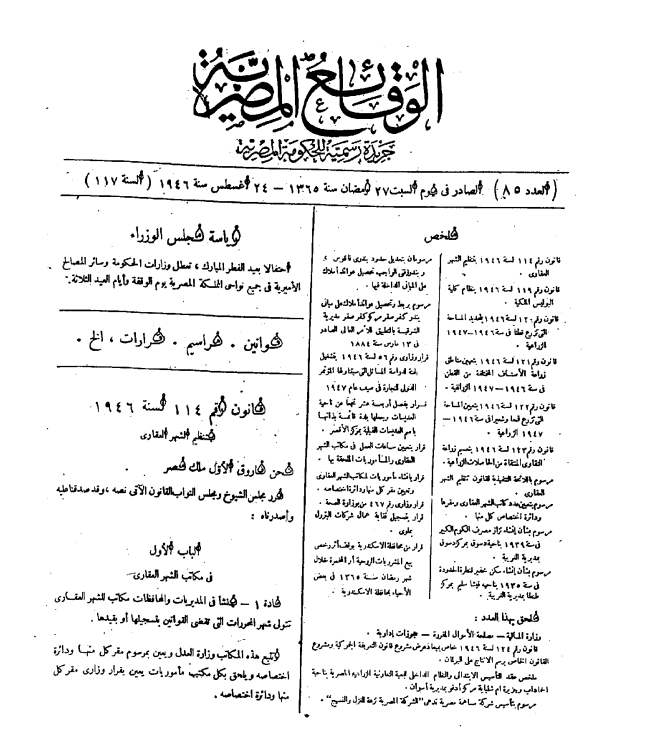 الوقائع المصرية
جريدة رسمية للحكومة المصرية
(العدد ٨٥) الصادر في يوم السبت ٢٧ رمضان سنة ١٣٦٥ – ٢٤ أغسطس سنة ١٩٤٦ (السنة ١١٧)
ملخص
قانون رقم ١١٤ لسنة ١٩٤٦ بتنظيم الشهر
العقارى .
قانون رقم ١١٩ لسنة ١٩٤٦ بنظام كلية
البوليس الملكية .
قانون رقم ١٢٠ لسنة ١٩٤٦ بتحديد المساحة
التى تزرع قطنًا فى سنة ١٩٤٦–١٩٤٧
الزراعية .
قانون رقم ١٢١ لسنة ١٩٤٦ بتعيين مناطق
زراعة الأصناف المختلفة من القطن
فى سنة ١٩٤٦–١٩٤٧ الزراعية .
قانون رقم ١٢٢ لسنة ١٩٤٦ بتعيين المساحة
التى تزرع قمحا وشعيرا فى سنة ١٩٤٦–
١٩٤٧ الزراعية .
قانون رقم ١٢٣ لسنة ١٩٤٦ بتعميم زراعة
التقاوى المنتقاة من الحاصلات الزراعية .
مرسوم باللائحة التنفيذية لقانون تنظيم الشهر
العقارى .
مرسوم بتعيين عدد مكاتب الشهر العقارى ومقرها
ودائرة اختصاص كل منها .
مرسوم بشأن إنشاء تراز مصرف الكوم الكبير
فى سنة ١٩٣٩ بناحية دسوق بمركز دسوق
بمديرية الغربية .
مرسوم بشأن إنشاء سكن خفير قنطرة الحدودة
فى سنة ١٩٣٥ بناحية قيشا سليم بمركز
طنطا بمديرية الغربية .
مرسومان بتعديل حدود بندرى فاقوس
و بندر التى الواجب تحصيل عوائد أملاك
على المبانى الداخلة فيها .
مرسوم بربط وتحصيل عوائد أملاك على مبانى
بندر كفر صقر مركز كفر صقر مديرية
الشرقية بالتطبيق للأمر العالى الصادر
فى ١٣ مارس سنة ١٨٨٤
قرار وزارى رقم ٥٦ لسنة ١٩٤٦ بتشكيل
لجنة لدراسة المسائل التى سيتناولها المؤتمر
الدولى للتجارة فى صيف عام ١٩٤٧
قرار بفصل أربعة عشر نجعًا من ناحية
العديسات وجعلها بلدة قائمة بذاتها
باسم العديسات القبلية بمركز الأقصر .
قرار بتعيين ساعات العمل فى مكاتب الشهر
العقارى والمأموريات الملحقة بها .
قرار بإنشاء مأموريات لمكاتب الشهر العقارى
وتعيين مقر كل منها ودائرة اختصاصه .
قرار وزارى رقم ٤٦٧ من وزارة الصحة .
قرار بتسجيل نقابة عمال شركات البترول
بملوى .
قرار من محافظة الاسكندرية بوقف أثر رخص
بيع المشروبات الروحية أو المخمرة خلال
شهر رمضان سنة ١٣٦٥ فى بعض
الأحياء بمحافظة الاسكندرية .
ملحق بهذا العدد :
وزارة المالية – مصلحة الأموال المقررة – حجوزات إدارية .
قانون رقم ١٢٤ لسنة ١٩٤٦ خاص بميعاد عرض مشروع قانون التعريفة الجمركية ومشروع
القانون الخاص برسم الانتاج على البرلمان .
ملخص عقد التأسيس الابتدائى والنظام الداخلى للجمعية التعاونية الزراعية المصرية بناحية
بمركز أدفو بمديرية أسوان .
مرسوم بتأسيس شركة مساهمة مصرية تدعى "الشركة المصرية ترعة للغزل والنسيج" .
رياسة مجلس الوزراء
احتفالا بعيد الفطر المبارك ، تعطل وزارات الحكومة وسائر المصالح
الأميرية فى جميع نواحى المملكة المصرية يوم الوقفة وأيام العيد الثلاثة .
قوانين . مراسيم . قرارات ، الخ .
قانون رقم ١١٤ لسنة ١٩٤٦
بتنظيم الشهر العقارى
نحن فاروق الأول ملك مصر
قرر مجلس الشيوخ ومجلس النواب القانون الآتى نصه ، وقد صدقنا عليه
وأصدرناه :
الباب الأول
فى مكاتب الشهر العقارى
مادة ١ – تنشأ فى المديريات والمحافظات مكاتب للشهر العقارى
تتولى شهر المحررات التى تقضى القوانين بتسجيلها أو بقيدها .
وتتبع هذه المكاتب وزارة العدل ويعين بمرسوم مقر كل منها ودائرة
اختصاصه ويلحق بكل مكتب مأموريات يعين بقرار وزارى مقر كل
منها ودائرة اختصاصه .